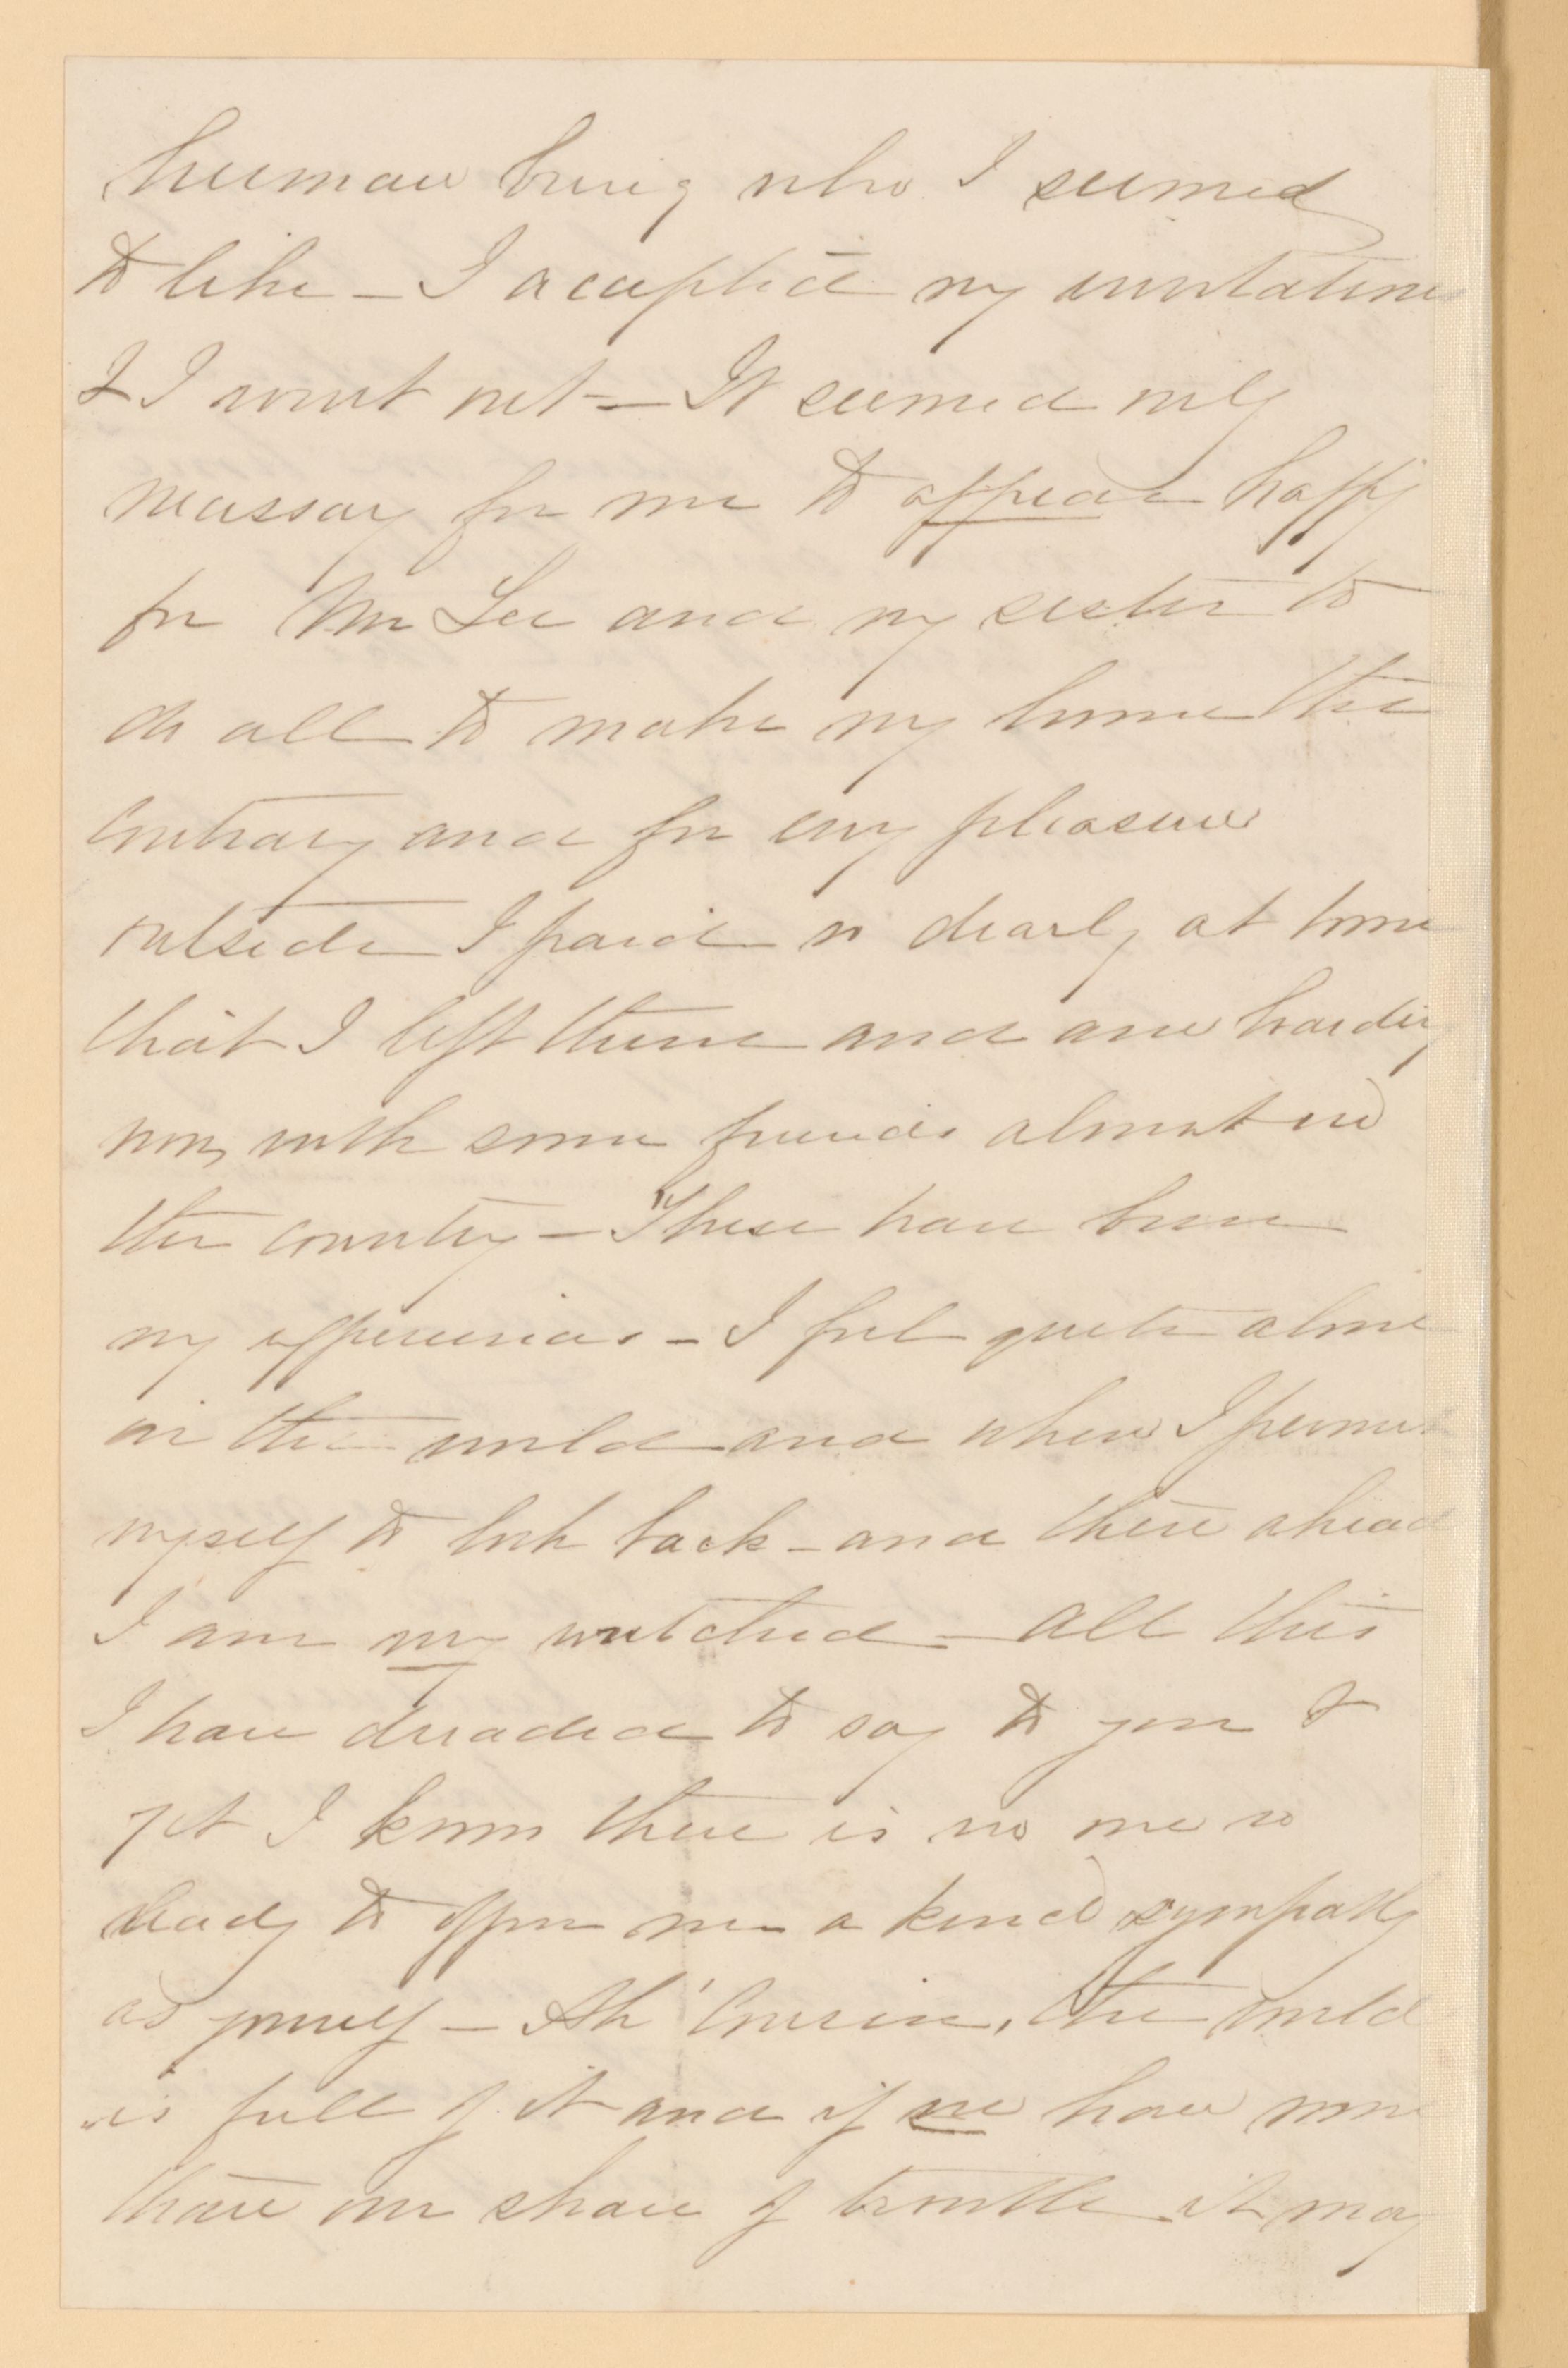 human being who I seemed
to like — I accepted my invitations
& I went out — It seemed only
necessary for me to appear happy
for Mr Lee and my sister to
do all to make my home the
contrary and for every pleasure
outside I paid so dearly at home
that I left there and am boarding
now, with some friends almost in
the country — These have been
my experiences — I feel quite alone
in the world and when I permit
myself to look back — and then ahead
I am very wretched — all this
I have dreaded to say to you &
yet I know there is no one so
ready to offer me a kind sympathy
as yourself — Ah! Cousin, the world
is full of it and if we have more
than our share of trouble it may